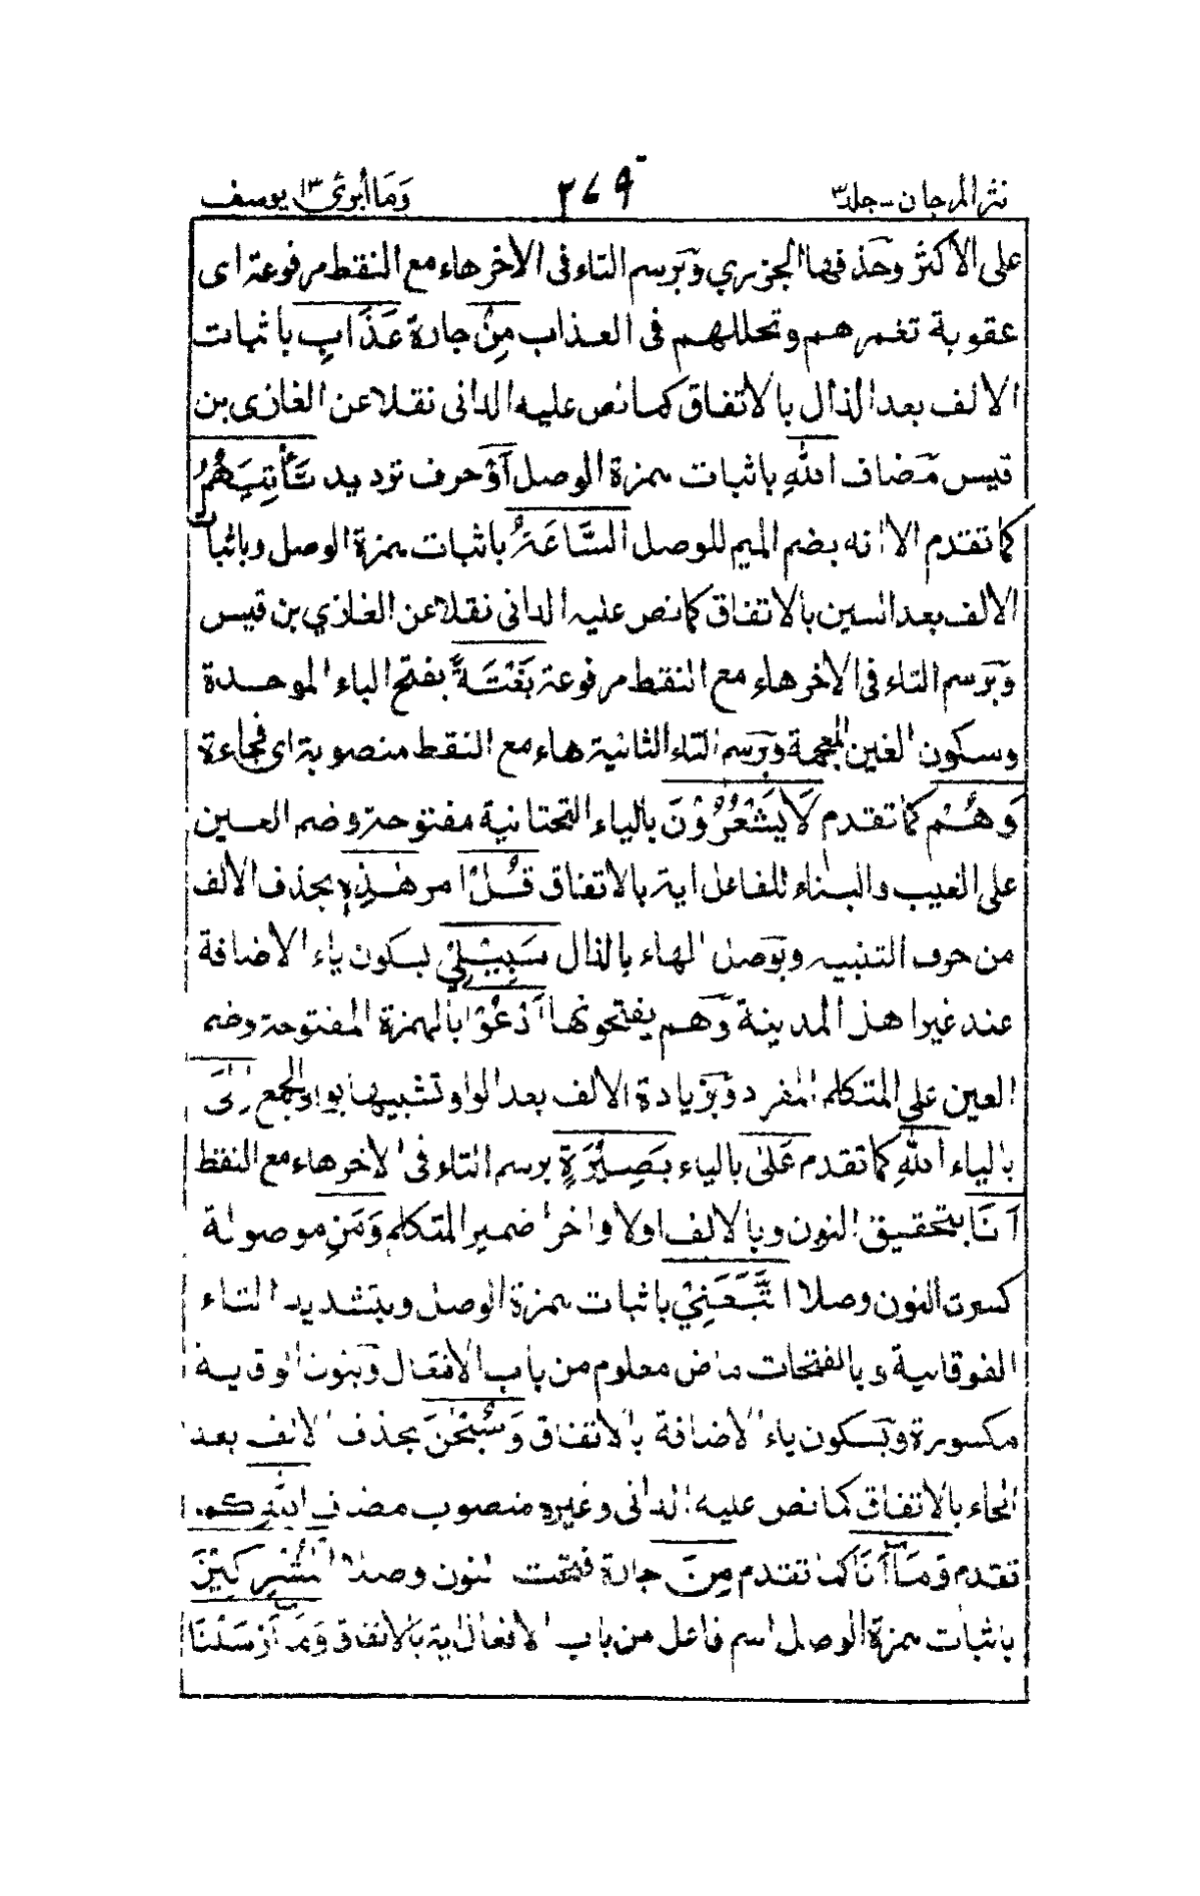 نثر المرجان - جلد ٣ ٢٦٩ وَمَا أبرئ ١٣ يوسف
على الاكثر وحذفها الجزري وبرسم التاء فى الاٰخر هاء مع النقط مرفوعة اى
عقوبة تغمرهم وتحللهم فى العذاب مِنْ جارة عَذَابِ باثبات
الالف بعد الذال بالاتفاق كما نص عليه الدانى نقلا عن الغازى بن
قيس مضاف اللّٰهِ باثبات همزة الوصل اَوْ حرف ترديد تَأْتِيَهُمُ
كما تقدم الا انه بضم الميم للوصل السَّاعَةُ باثبات همزة الوصل وباثبات
الالف بعد السين بالاتفاق كما نص عليه الدانى نقلا عن الغازي بن قيس
وبرسم التاء فى الاخر هاء مع النقط مرفوعة بَغْتَةً بفتح الباء الموحدة
وسكون الغين المعجمة وبرسم التاء الثانية هاء مع النقط منصوبة اى فجاءة
وَهُمْ كما تقدم لَا يَشْعُرُوْنَ بالياء التحتانية مفتوحة وضم العين
على الغيب والبناء للفاعل اية بالاتفاق قُلْ امر هٰذِهٖ بحذف الالف
من حرف التنبيه وبوصل الهاء بالذال سَبِيْلِيْ بسكون ياء الاضافة
عند غير اهل المدينة وهم يفتحونها اَدْعُوْا بالهمزة المفتوحة وضم
العين على المتكلم المفرد وبزيادة الالف بعد الواو تشبيها بواو الجمع اِلَى
بالياء اللّٰهِ كما تقدم عَلٰى بالياء بَصِيْرَةٍ برسم التاء فى الاخر هاء مع النقط
اَنَا بتحقيق النون وبالالف اولا واخرا ضمير المتكلم وَمَنِ موصولة
كسرت النون وصلا اتَّبَعَنِيْ باثبات همزة الوصل وبتشديد التاء
الفوقانية وبالفتحات ماض معلوم من باب الافتعال وبنون الوقاية
مكسورة وبسكون ياء الاضافة بالاتفاق وَسُبْحٰنَ بحذف الالف بعد
الحاء بالاتفاق كما نص عليه الدانى وغيره منصوب مضاف اللّٰهِ كما
تقدم وَمَآ اَنَا كما تقدم مِنَ جارة فتحت النون وصلا الْمُشْرِكِيْنَ
باثبات همزة الوصل اسم فاعل من باب الافعال اية بالاتفاق وَمَآ اَرْسَلْنَا